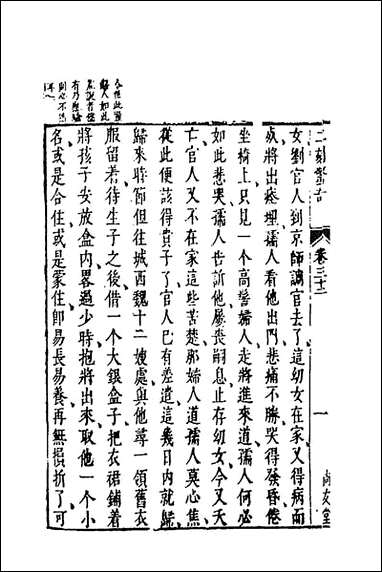 二刻驚奇 卷三十二 一 尚友堂
女劉官人到京師調官去了這幼女在家又得病而
夭將出瘞埋孺人看他出門悲痛不勝哭得發昏倦
坐椅上只見一個高髻婦人走將進來道孺人何必
如此悲哭孺人告訴他屢喪嗣息止存幼女今又夭
亡官人又不在家這些苦楚那婦人道孺人莫心焦
從此便該得貴子了官人已有差遣這幾日內就歸
歸來時節但往城西魏十二嫂處與他尋一領舊衣
服留着待生子之後借一个大銀盒子把衣裙鋪着
將孩子安放盒內畧過少時抱將出來取他一个小
名或是合住或是蒙住即易長易養再無損折了可